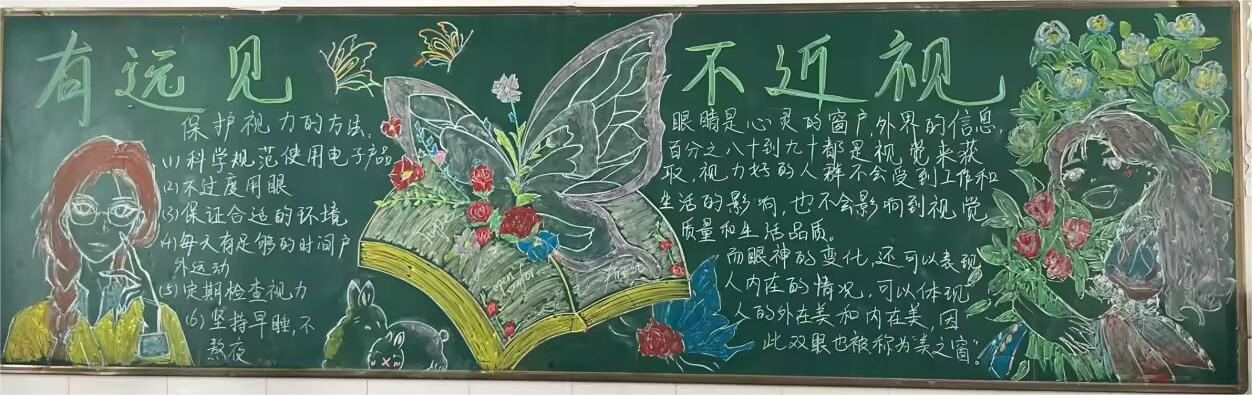 有远见
不近视
保护视力的方法:
(1)科学规范使用电子产品
(2)不过度用眼
(3)保证合适的环境
(4)每天有足够的时间户
外运动
(5)定期检查视力
(6)坚持早睡,不
熬夜
眼睛是心灵的窗户,外界的信息,
百分之八十到九十都是视觉来获
取,视力好的人群不会受到工作和
生活的影响,也不会影响到视觉
质量和生活品质。
而眼神的变化,还可以表现
人内在的情况,可以体现
人的外在美和内在美,因
此双眼也被称为“美之窗”。